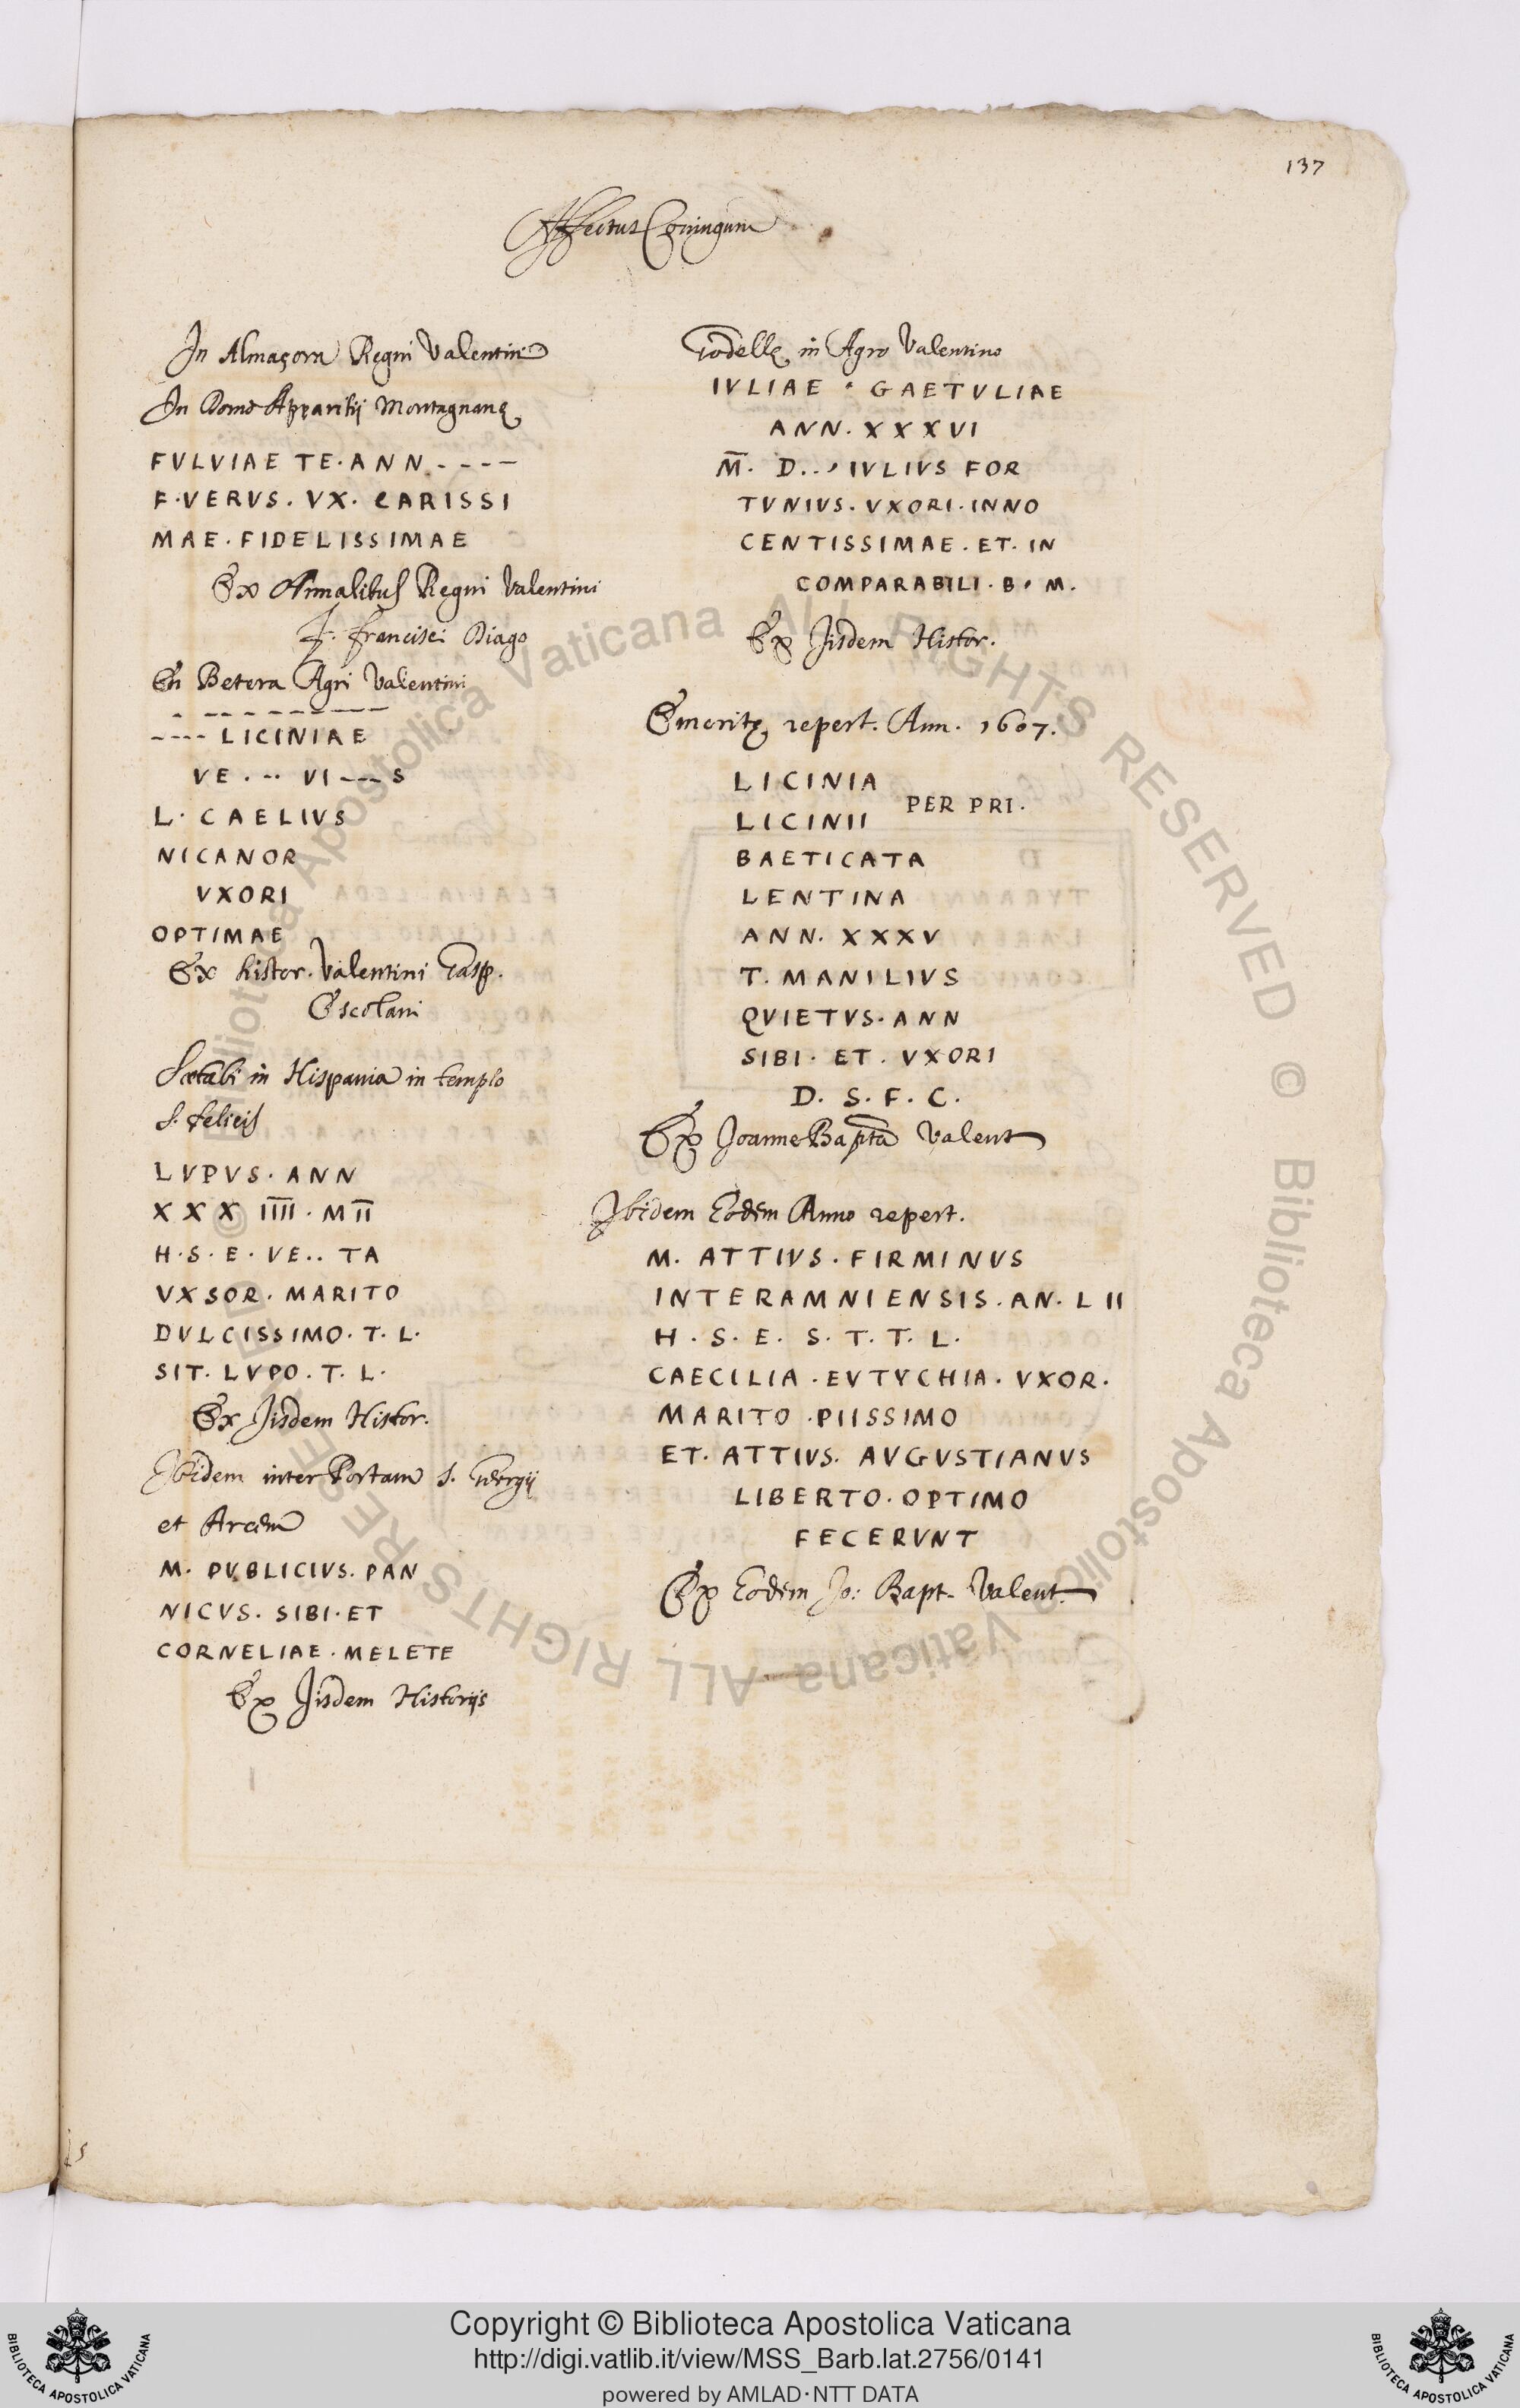 137
Affectus Coniugum
In Almaçora Regni Valentini
In Domo Apparitij Montagnanę
FVLVIAE TE·ANN----
F·VERVS. VX. CARISSI
MAE·FIDELISSIMAE
Ex Annalibus Regni Valentini
F. Francisci Diago
En Betera Agri Valentini
- -- -- -- -- --
---- LICINIAE
VE . -- VI ---S
L· CAELIVS
NICANOR
VXORI
OPTIMAE
Ex histor. Valentini Gasp.
Escolani
Sætabi in Hispania in templo
S. Felicis
LVPVS. ANN
X X X I̅I̅I̅I̅ · M I̅I̅
H·S·E· VE.. TA
VXSOR· MARITO
DVLCISSIMO· T. L.
SIT· LVPO. T. L.
Ex Jisdem Histor.
Ibidem inter Portam S. Georgij
et Arcem
M· PVBLICIVS. PAN
NICVS. SIBI·ET
CORNELIAE·MELETE
Ex Jisdem Historijs
Godellę in Agro Valentino
IVLIAE · GAETVLIAE
ANN. XXXVI
M̅. D.., IVLIVS FOR
TVNIVS. VXORI·INNO
CENTISSIMAE. ET. IN
COMPARABILI. B. M.
Ex Jisdem Histor.
Emeritę repert. Ann. 1607.
LICINIA
PER PRI.
LICINII
BAETICATA
LENTINA
ANN. XXXV
T. MANILIVS
QVIETVS. ANN
SIBI· ET. VXORI
D. S. F. C.
Ex Joanne Bapta Valent
Ibidem Eodem Anno repert.
M. ATTIVS. FIRMINVS
INTERAMNIENSIS. AN. L II
H. S. E. S. T. T. L.
CAECILIA. EVTYCHIA. VXOR.
MARITO ·PIISSIMO
ET. ATTIVS. AVGVSTIANVS
LIBERTO. OPTIMO
FECERVNT
Ex Eodem Jo: Bapt. Valent.
© Biblioteca Apostolica Vaticana ALL RIGHTS RESERVED © Biblioteca Apostolica Vaticana ALL RIGHTS RESERVED
BIBLIOTECA APOSTOLICA VATICANA
Copyright © Biblioteca Apostolica Vaticana
http://digi.vatlib.it/view/MSS_Barb.lat.2756/0141
powered by AMLAD·NTT DATA
BIBLIOTECA APOSTOLICA VATICANA